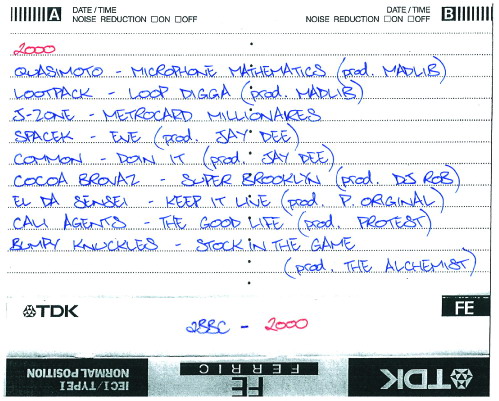 A DATE / TIME
NOISE REDUCTION □ON □OFF
DATE / TIME B
NOISE REDUCTION □ON □OFF
2000
QUASIMOTO - MICROPHONE MATHEMATICS (prod. MADLIB)
LOOTPACK - LOOP DIGGA (prod. MADLIB)
J-ZONE - METROCARD MILLIONAIRES
SPACEK - EVE (prod. JAY DEE)
COMMON - DOIN IT (prod. JAY DEE)
COCOA BROVAZ - SUPER BROOKLYN (prod. DJ ROB)
EL DA SENSEI - KEEP IT LIVE (prod. P. ORIGINAL)
CALI AGENTS - THE GOOD LIFE (prod. PROTEST)
BUMPY KNUCKLES - STOCK IN THE GAME
(prod. THE ALCHEMIST)
TDK FE
2BBC - 2000
IECI/TYPE I
NORMAL POSITION
FE
FERRIC
TDK